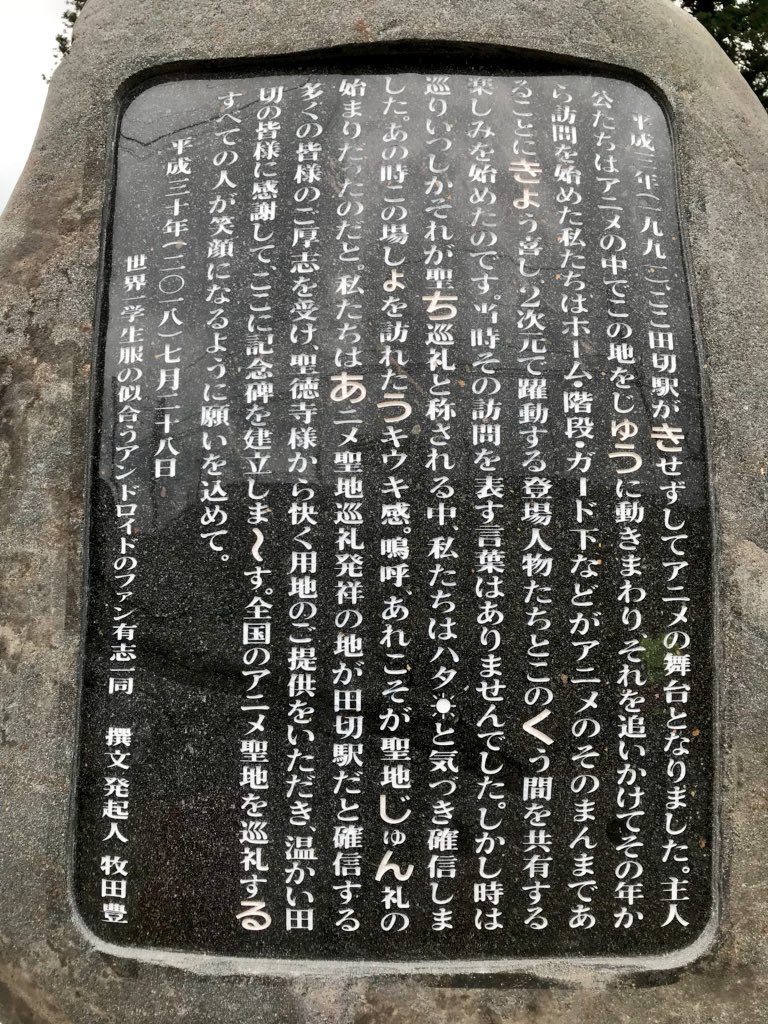 平成三年(一九九一)、ここ田切駅がきせずしてアニメの舞台となりました。主人
公たちはアニメの中でこの地をじゅうに動きまわり、それを追いかけてその年か
ら訪問を始めた私たちはホーム・階段・ガード下などがアニメのそのまんまであ
ることにきょう喜し、2次元で躍動する登場人物たちとこのくう間を共有する
楽しみを始めたのです。当時その訪問を表す言葉はありませんでした。しかし時は
巡りいつしかそれが聖ち巡礼と称される中、私たちはハタ☀と気づき確信しま
した。あの時この場しょを訪れたうキウキ感。嗚呼、あれこそが聖地じゅん礼の
始まりだったのだと。私たちはあニメ聖地巡礼発祥の地が田切駅だと確信する
多くの皆様のご厚志を受け、聖徳寺様から快く用地のご提供をいただき、温かい田
切の皆様に感謝して、ここに記念碑を建立しま〜す。全国のアニメ聖地を巡礼する
すべての人が笑顔になるように願いを込めて。
平成三十年(二〇一八)七月二十八日
世界一学生服の似合うアンドロイドのファン有志一同 撰文 発起人 牧田 豊